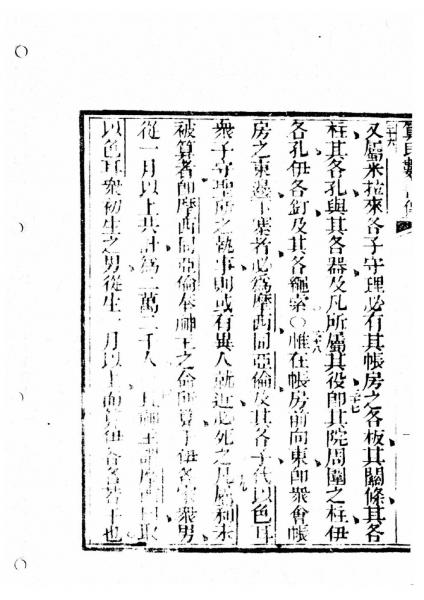 民數
三十六
又屬米拉來各子守理必有其帳房之各板其關條其各
三十七
柱其各孔與其各器及凡所屬其役卽其院周圍之柱伊
三十八
各孔伊各釘及其各繩索○惟在帳房前向東卽衆會帳
房之東邊下塞者必爲摩西同亞倫及其各子代以色耳
衆子守聖所之執事則或有異人就近必死之凡屬利未
被算者卽摩西同亞倫奉神主之命所算于伊各室衆男
從一月以上共計爲二萬二千人 神主謂摩西曰取
以色耳衆初生之男從生一月以上而算伊各名若干也